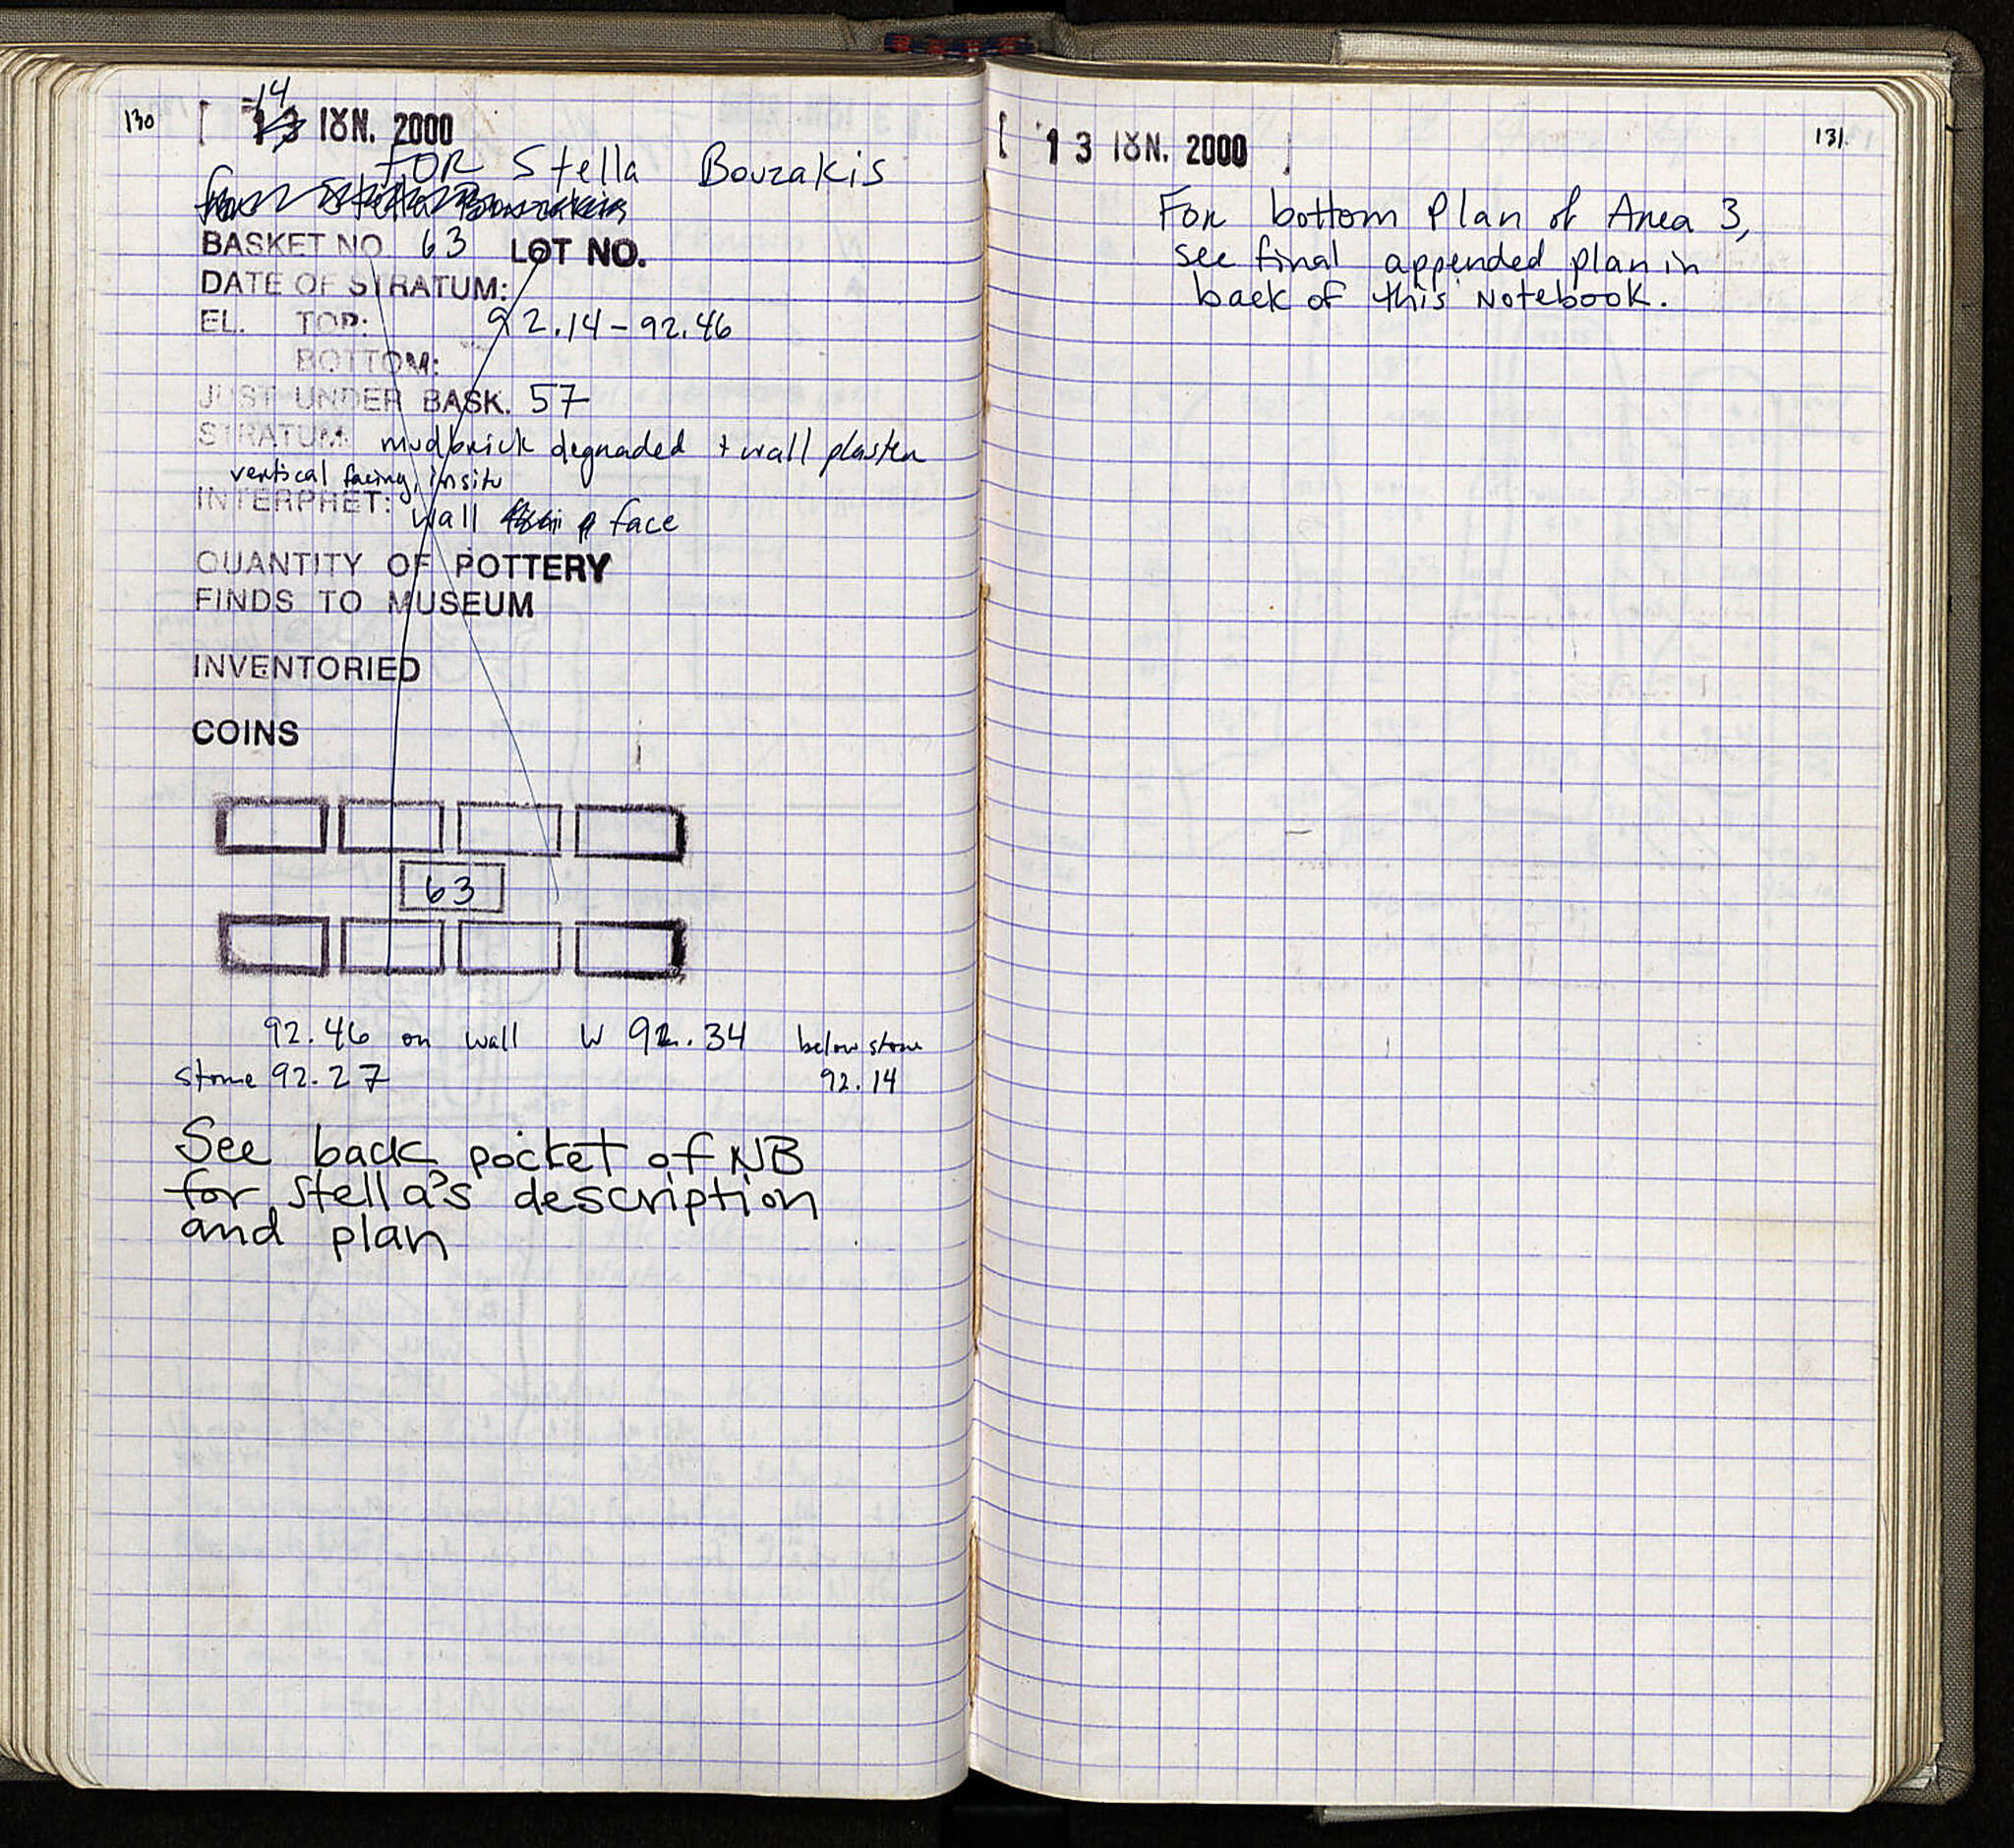 130
14
13 ΙȢΝ. 2000
FOR Stella Bouzakis
for Stella Bouzakis
BASKET NO 63 LOT NO.
DATE OF STRATUM:
EL. TOP: 92.14-92.46
BOTTOM:
JUST UNDER BASK. 57
STRATUM: mudbrick degraded + wall plaster
vertical facing, insitu
INTERPRET: wall face
QUANTITY OF POTTERY
FINDS TO MUSEUM
INVENTORIED
COINS
63
92.46 on wall W 92.34 below stone
stone 92.27 92.14
See back pocket of NB
for Stella's description
and plan
13 ΙȢΝ. 2000
131
For bottom Plan of Area 3,
see final appended plan in
back of this Notebook.